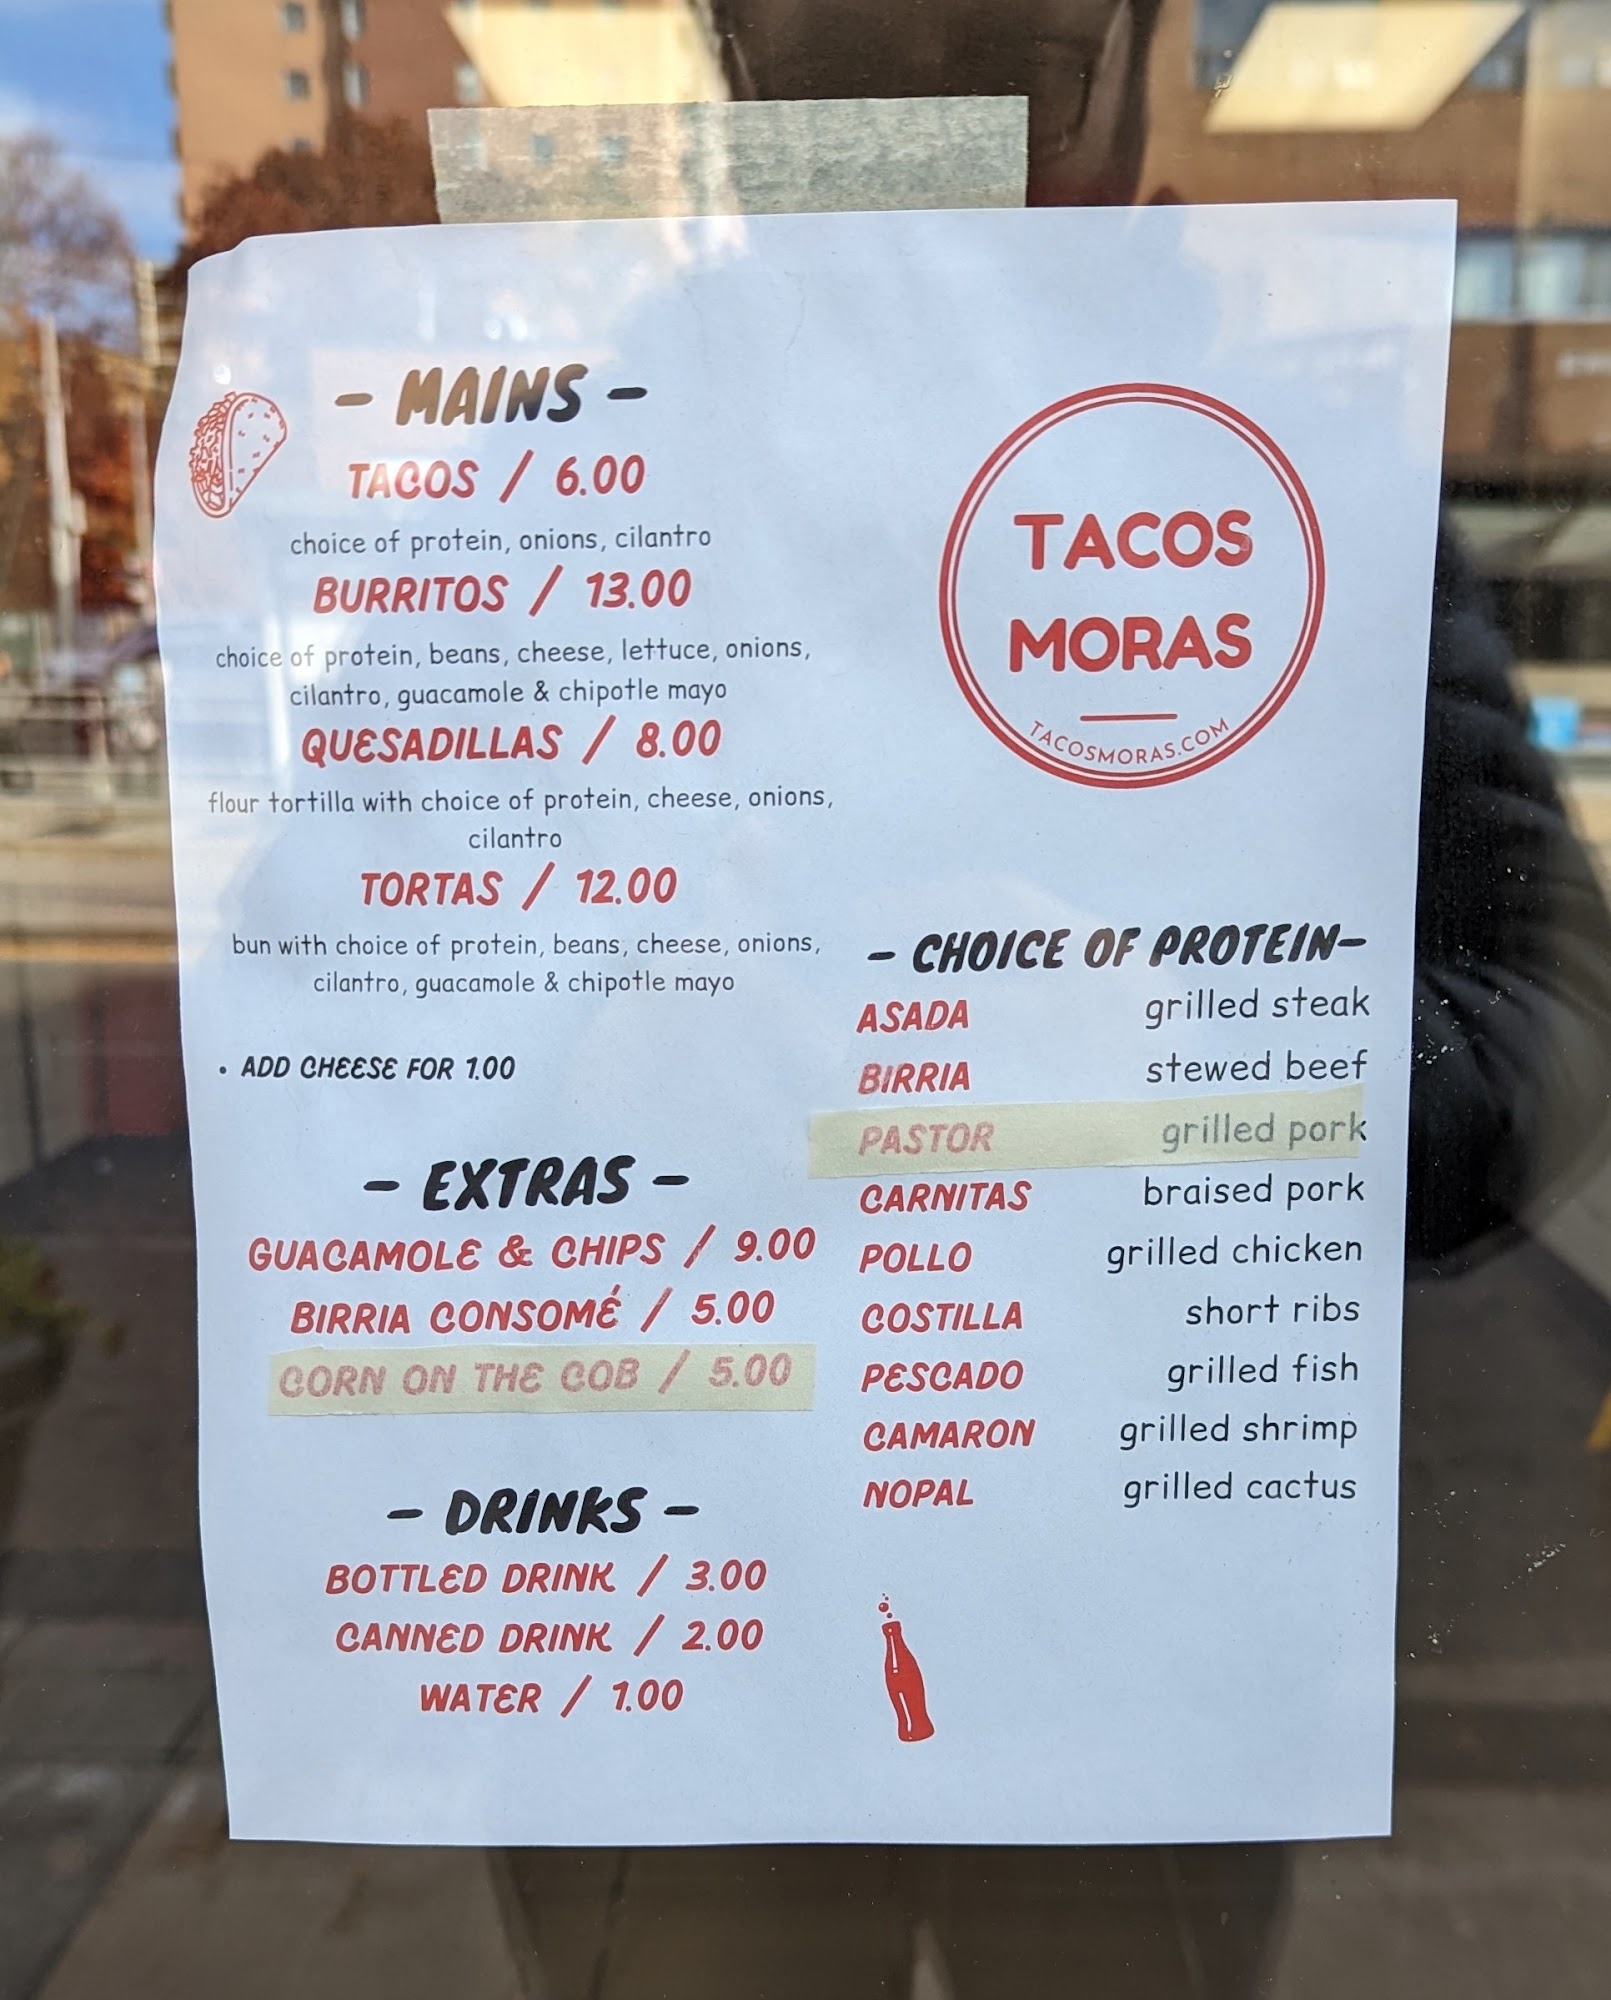 - MAINS -
TACOS / 6.00
choice of protein, onions, cilantro
BURRITOS / 13.00
choice of protein, beans, cheese, lettuce, onions,
cilantro, guacamole & chipotle mayo
QUESADILLAS / 8.00
flour tortilla with choice of protein, cheese, onions,
cilantro
TORTAS / 12.00
bun with choice of protein, beans, cheese, onions,
cilantro, guacamole & chipotle mayo
• ADD CHEESE FOR 1.00
- EXTRAS -
GUACAMOLE & CHIPS / 9.00
BIRRIA CONSOMÉ / 5.00
CORN ON THE COB / 5.00
- DRINKS -
BOTTLED DRINK / 3.00
CANNED DRINK / 2.00
WATER / 1.00
TACOS
MORAS
TACOSMORAS.COM
- CHOICE OF PROTEIN-
ASADA grilled steak
BIRRIA stewed beef
PASTOR grilled pork
CARNITAS braised pork
POLLO grilled chicken
COSTILLA short ribs
PESCADO grilled fish
CAMARON grilled shrimp
NOPAL grilled cactus